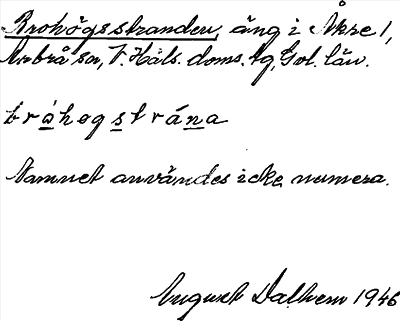 Brohögsstranden, äng i Åkre 1,
Arbrå sn, V. Häls. doms. tg, Gvl. län.
bråhøgstrána
Namnet användes icke numera.
August Dalhem 1946